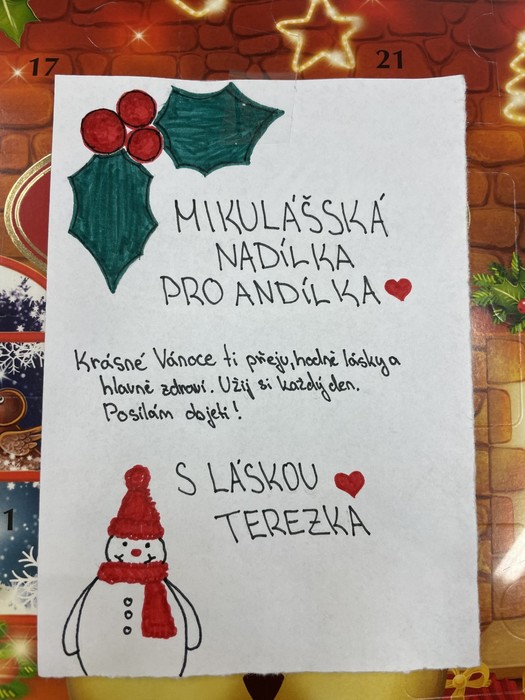 17
21
MIKULÁŠSKÁ
NADÍLKA
PRO ANDÍLKA
Krásné Vánoce ti přeju, hodně lásky a
hlavně zdraví. Užij si každý den.
Posílám dojetí!
S LÁSKOU
TEREZKA
1